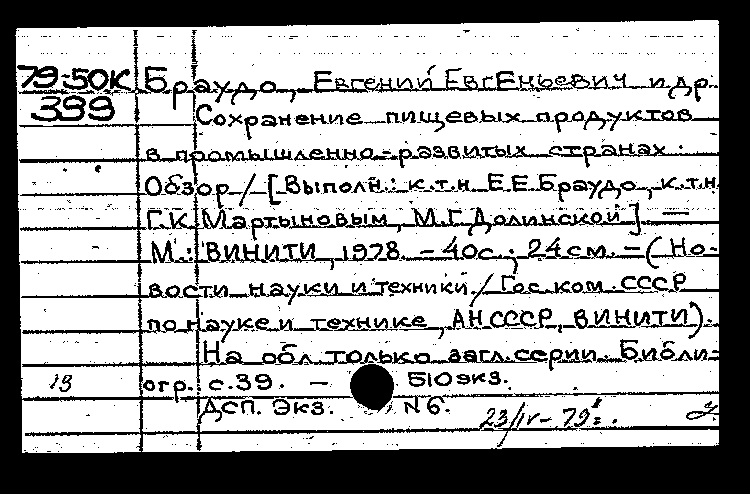 79-50К Браудо, Евгений Евгеньевич и др.
399 Сохранение пищевых продуктов
в промышленно-развитых странах.
Обзор / [Выполн.: к.т.н. Е.Е.Браудо, к.т.н.
Г.К.Мартыновым, М.Г.Долинской]. —
М.: ВИНИТИ, 1978. - 40с.; 24см. - (Но-
вости науки и техники / Гос.ком.СССР
по науке и технике, АН СССР, ВИНИТИ).
На обл. только загл. серии. Библи-
13 огр. с.39. - 510экз.
ДСП. Экз. N6. 23/IV-79г.